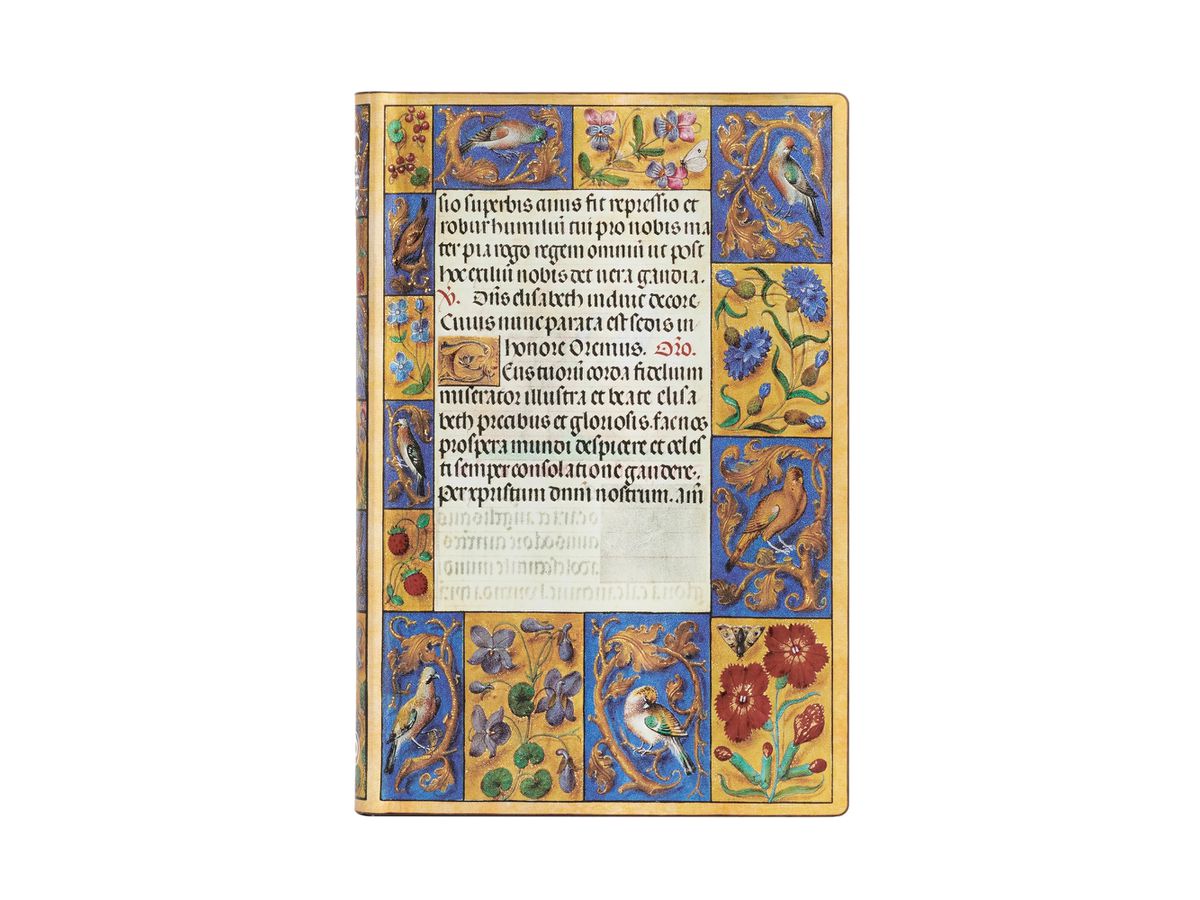 sio superbis cuius fit repressio et
robur humiliū tui pro nobis ma
ter pia rogo regem omniū ut post
hoc exiliū nobis det uera gaudia.
V. Dn̄s elisabeth induit decore
Cuius nunc parata est sedis in
honore Oremus. Or̄o.
Eus tuorū corda fidelium
miserator illustra et beate elisa
beth precibus et gloriosis. fac nos
prospera mundi despicere et celes
ti semper consolatione gaudere.
Per xp̄ristum dnm̄ nostrum. am̄